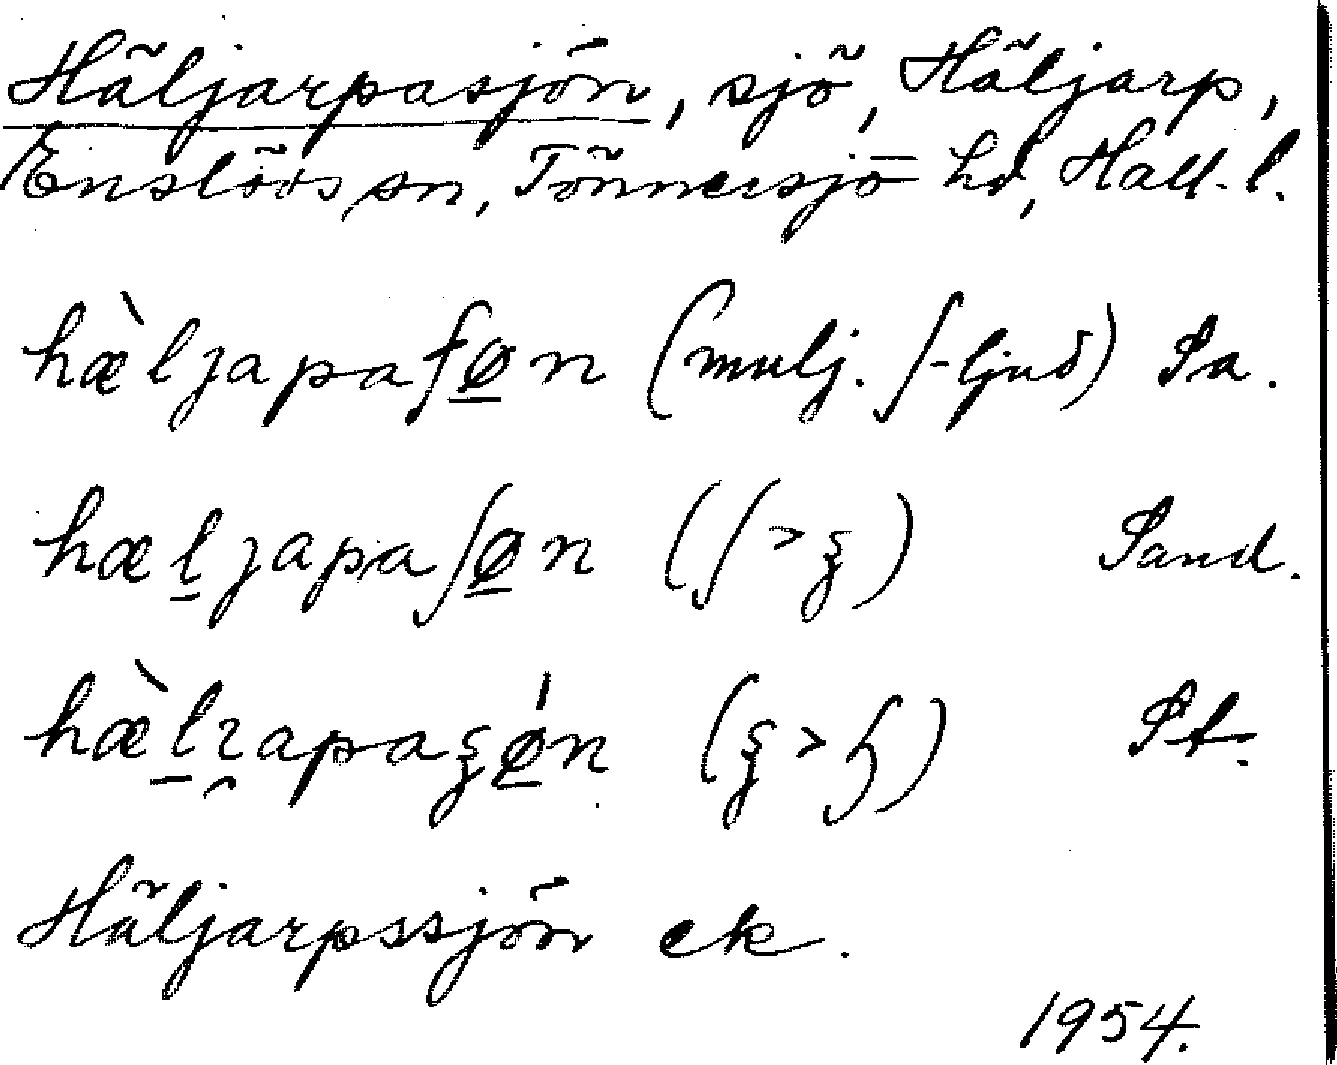 Häljarpasjön, sjö, Häljarp,
Enslövs sn, Tönnersjö hd, Hall. l.
hæ̀ljapaʃø̠n (mulj. ʃ-ljud) Pa.
hæl̠japaʃø̠n (ʃ > ξ) Pand.
hæ̀l̠ɿ̯apaξǿ̠n (ξ > ɧ) Pt.
Häljarpssjön ek.
1954.